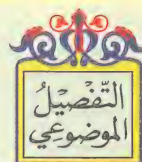 التَّفْصِيلُ
الموضوعي